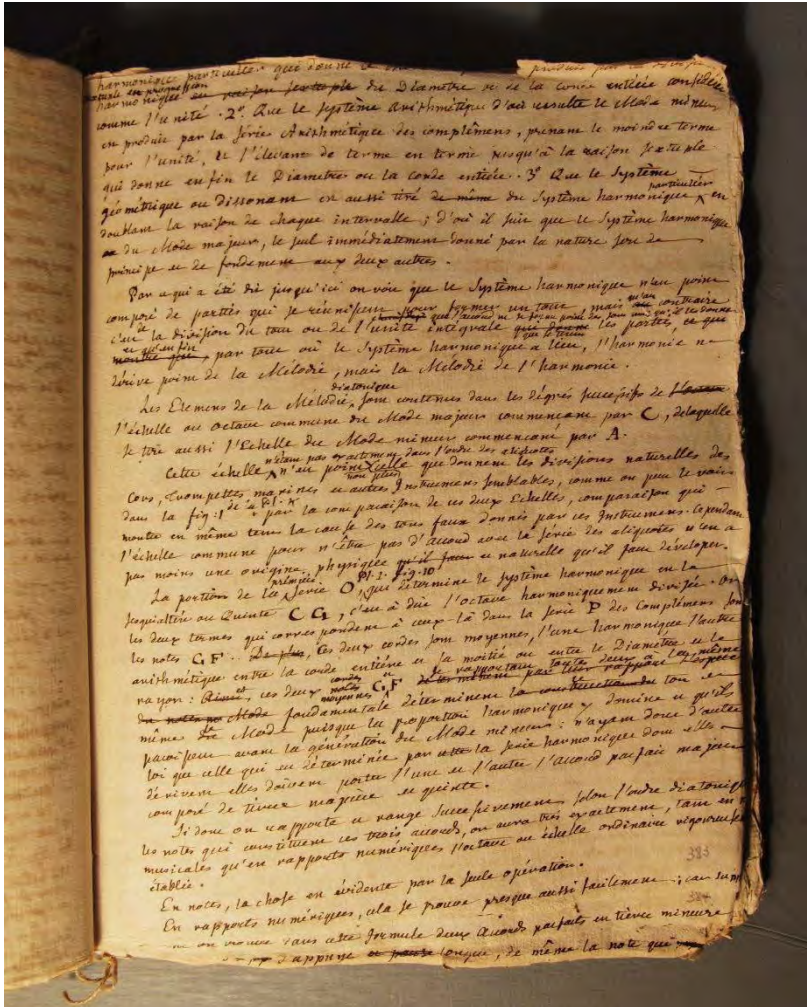 harmonique particulier qui donne le produits par la division
naturelle en progression
harmonique en raison sextuple du Diametre ou de la corde entiére considérée
comme l'unité. 2º. Que le système arithmétique d'où resulte le Mode mineur
est produit par la série Arithmétique des complémens, prenant le moindre terme
pour l'unité, et l'élevant de terme en terme jusqu'à la raison sextuple
qui donne enfin le Diametre ou la corde entiére. 3º Que le Système
géométrique ou dissonant est aussi tiré de même du Système harmonique particulier en
doublant la raison de chaque intervalle ; d'où il suit que le Système harmonique
du Mode majeur, le seul immédiatement donné par la nature sert de
principe et de fondement aux deux autres.
Par ce qui a été dit jusqu'ici on voit que le Système harmonique n'est point
composé de parties qui se réunissent pour former un tout, mais qu'au contraire
c'est de la division du tout ou de l'unité intégrale les parties, ce que
et qu'enfin par tout où le Système harmonique a lieu, l'harmonie ne
dérive point de la Mélodie, mais la Mélodie de l'harmonie.
Les Elemens de la Mélodie diatonique sont contenus dans les dégrés successifs de l'octave
l'échelle ou octave commune du Mode majeur commençant par C, delaquelle
se tire aussi l'Echelle du Mode mineur commençant par A.
Cette échelle n'étant pas exactement dans l'ordre des aliquotes n'est point non plus celle que donnent les divisions naturelles des
Cors, Trompettes marines et autres Instrumens semblables, comme on peut le voir
dans la fig: 1 de la Pl. K par la comparaison de ces deux Echelles, comparaison qui
montre en même tems la cause des tons faux donnés par ces Instrumens. Cependant
l'échelle commune pour n'être pas d'accord avec la série des aliquotes n'en a
pas moins une origine physique et naturelle qu'il faut déveloper.
La portion de la premiére Serie O Pl. I. Fig. 10, qui détermine le système harmonique est la
sesquialtére ou Quinte C G, c'est à dire l'octave harmoniquement divisée. Or
les deux termes qui correspondent à ceux-là dans la serie P des Complémens sont
les notes G F. Ces deux cordes sont moyennes, l'une harmonique l'autre
arithmétique entre la corde entiére et sa moitié ou entre le Diamétre et le
rayon : et ces deux cordes moyennes G et F se rapportant toutes deux à la même
fondamentale déterminent le ton et
même le Mode puisque la proportion harmonique y domine et qu'elles
paroissent avant la génération du Mode mineur : n'ayant donc d'autre
loi que celle qui est déterminée par la serie harmonique dont elles
dérivent elles doivent porter l'une et l'autre l'accord parfait majeur
composé de tierce majeure et quinte.
Si donc on rapporte et range successivement selon l'ordre diatonique
les notes qui constituent ces trois accords, on aura très exactement, tant en
musicales qu'en rapports numériques l'octave ou échelle ordinaire rigoureusement
établie.
En notes, la chose est évidente par la seule opération.
En rapports numériques, cela se prouve presque aussi facilement ; car
383
384
on trouve dans cette formule deux Accords parfaits en tierce mineure
longue, de même la note qui